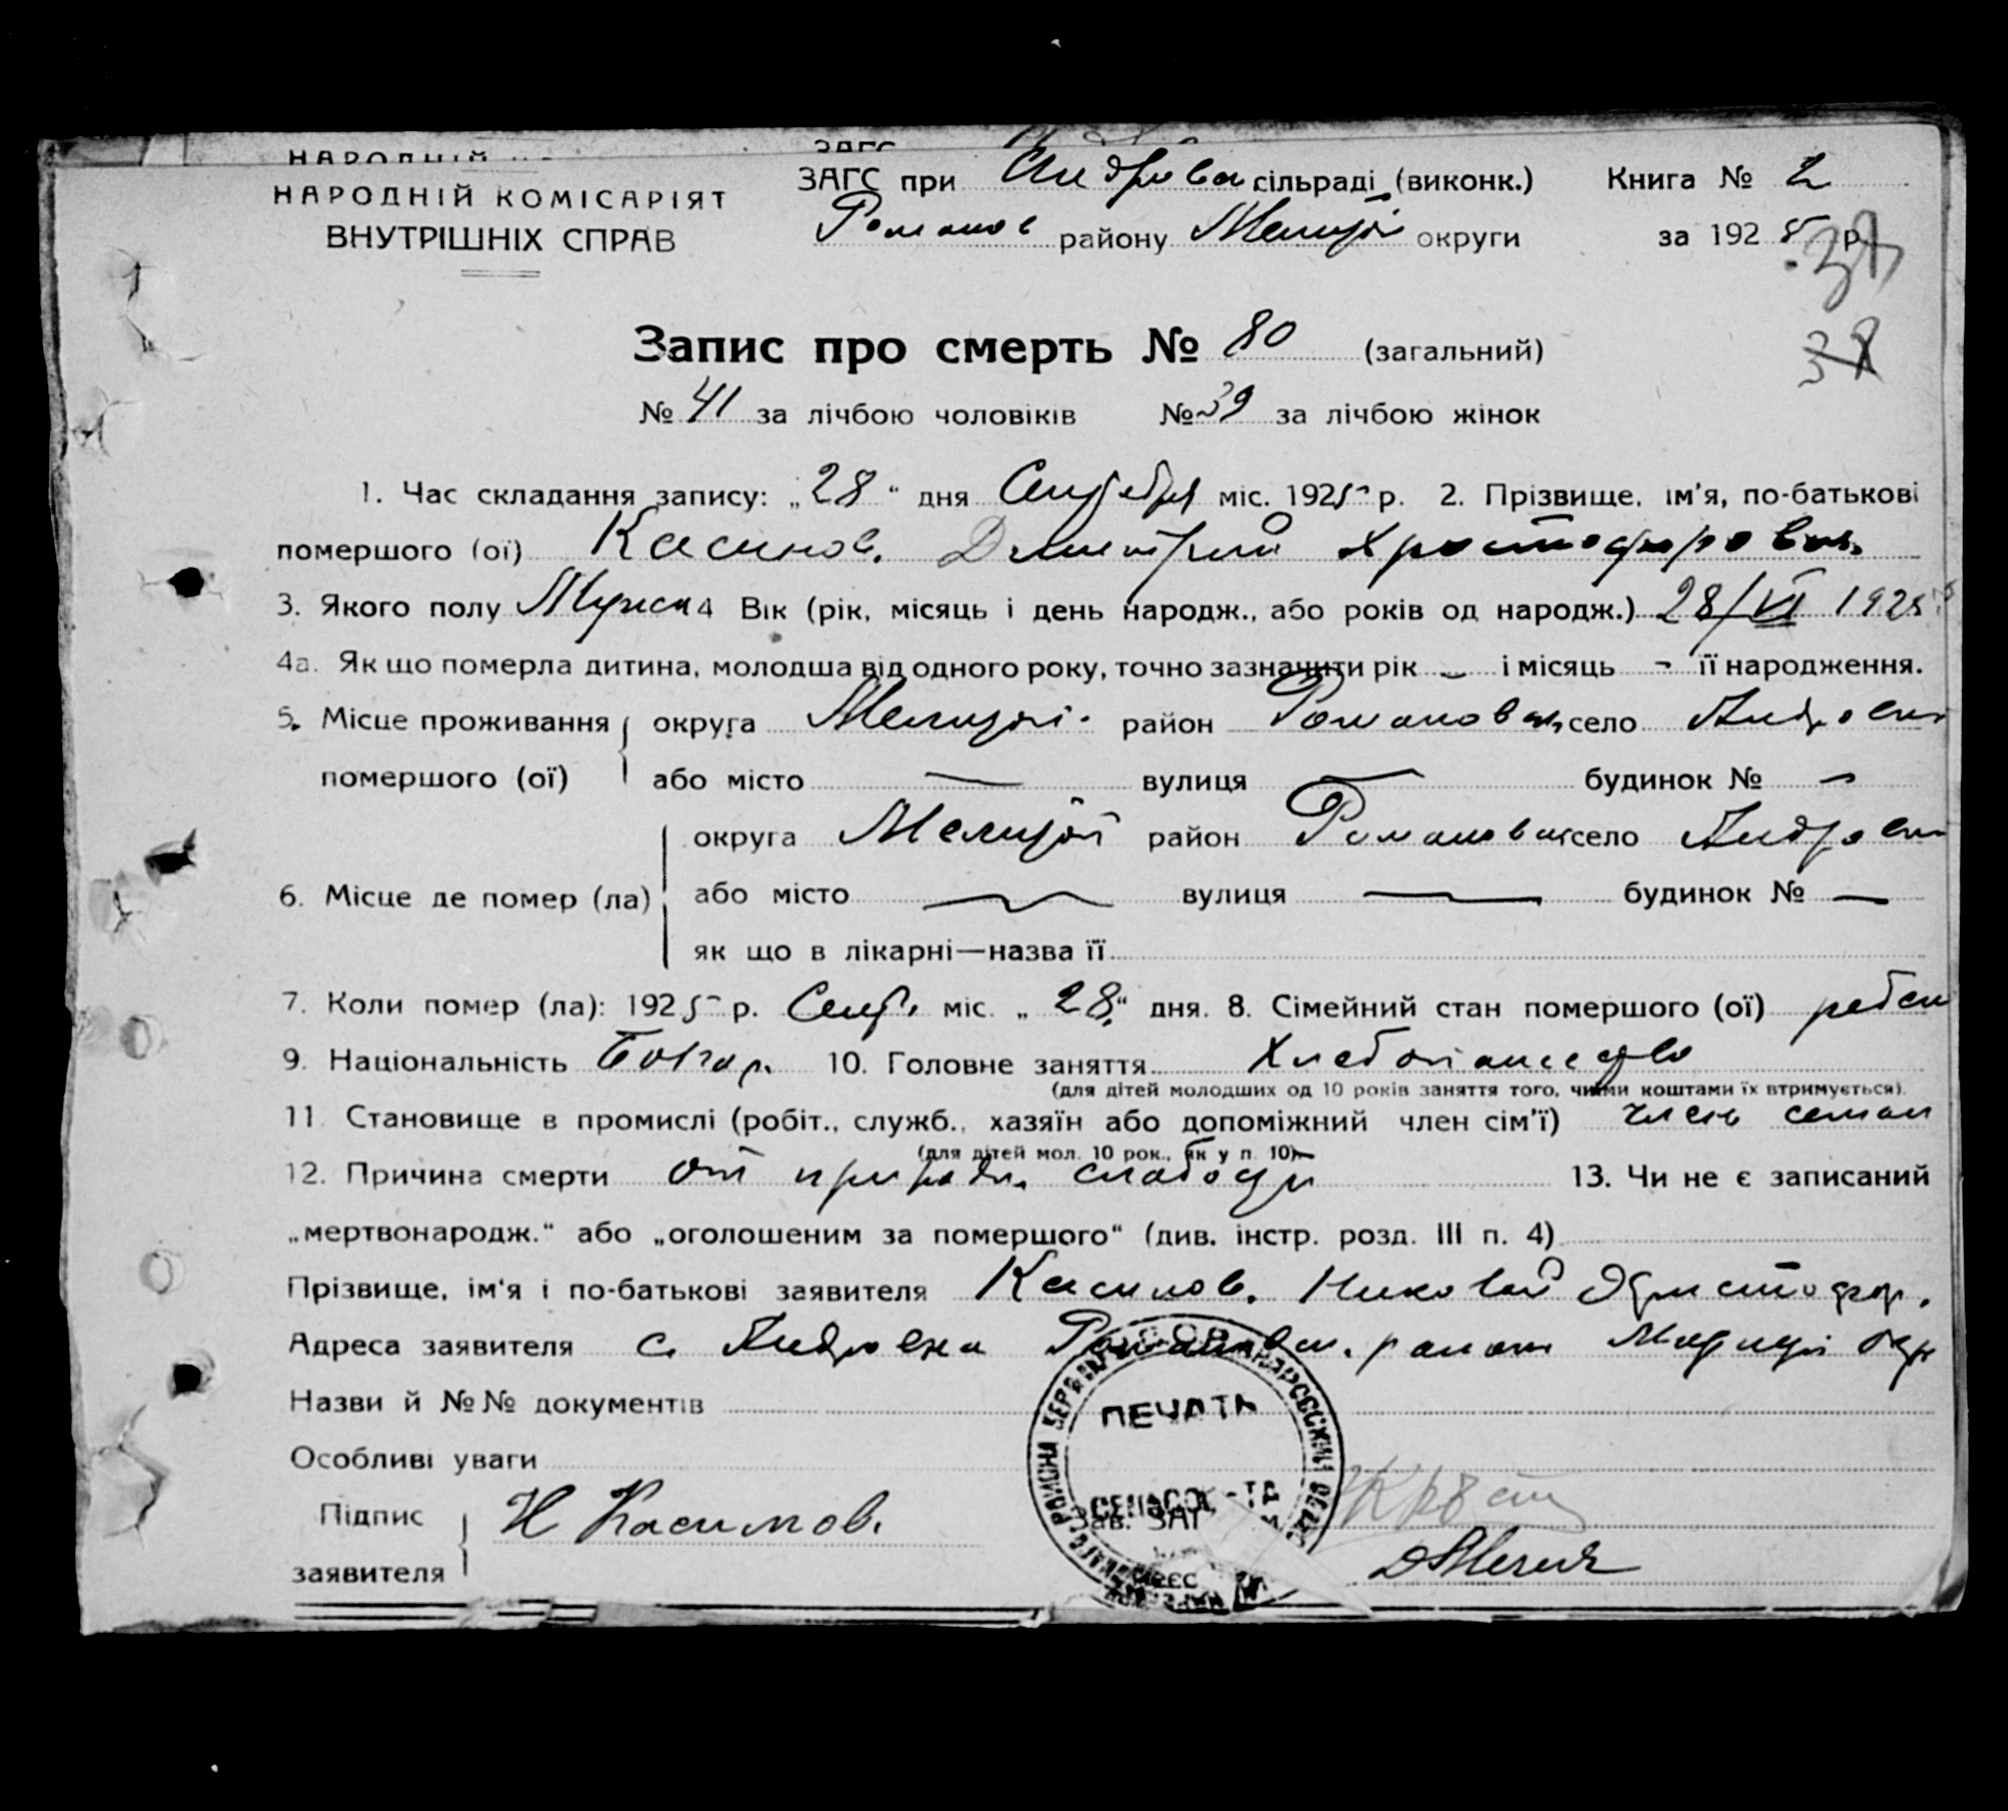 НАРОДНІЙ КОМІСАРІЯТ
ВНУТРІШНІХ СПРАВ
ЗАГС при Андровск сільраді (виконк.) Книга № 2
Романов району Мелитоп округи за 1925 р.
38
Запис про смерть № 80 (загальний)
№ 41 за лічбою чоловіків № 39 за лічбою жінок
1. Час складання запису: „28“ дня Сентября міс. 1925 р. 2. Прізвище, ім'я, по-батькові
помершого (ої) Касимов. Дмитрий Христофорович
3. Якого полу Мужск 4 Вік (рік, місяць і день народж., або років од народж.) 28/VI 1925
4а. Як що померла дитина, молодша від одного року, точно зазначити рік – і місяць – її народження.
5. Місце проживання округа Мелитоп. район Романовск село Андровка
помершого (ої) або місто — вулиця — будинок № —
округа Мелитоп район Романовск село Андровка
6. Місце де помер (ла) або місто — вулиця — будинок № —
як що в лікарні—назва її
7. Коли помер (ла): 1925 р. Сент. міс. „28“ дня. 8. Сімейний стан помершого (ої) ребен
9. Національність Болгар. 10. Головне заняття Хлебопашество
(для дітей молодших од 10 років заняття того, чиїми коштами їх втримується).
11. Становище в промислі (робіт., служб., хазяїн або допоміжний член сім'ї) член семьи
(для дітей мол. 10 рок., як у п. 10)
12. Причина смерти от природн. слабости 13. Чи не є записаний
„мертвонародж.“ або „оголошеним за помершого“ (див. інстр. розд. III п. 4)
Прізвище, ім'я і по-батькові заявителя Касимов. Николай Христофор.
Адреса заявителя с. Андровка Романовск. район Мелитоп окр
Назви й №№ документів
ПЕЧАТЬ
Особливі уваги
Підпис
заявителя Н Касимов.
Зав. ЗАГ